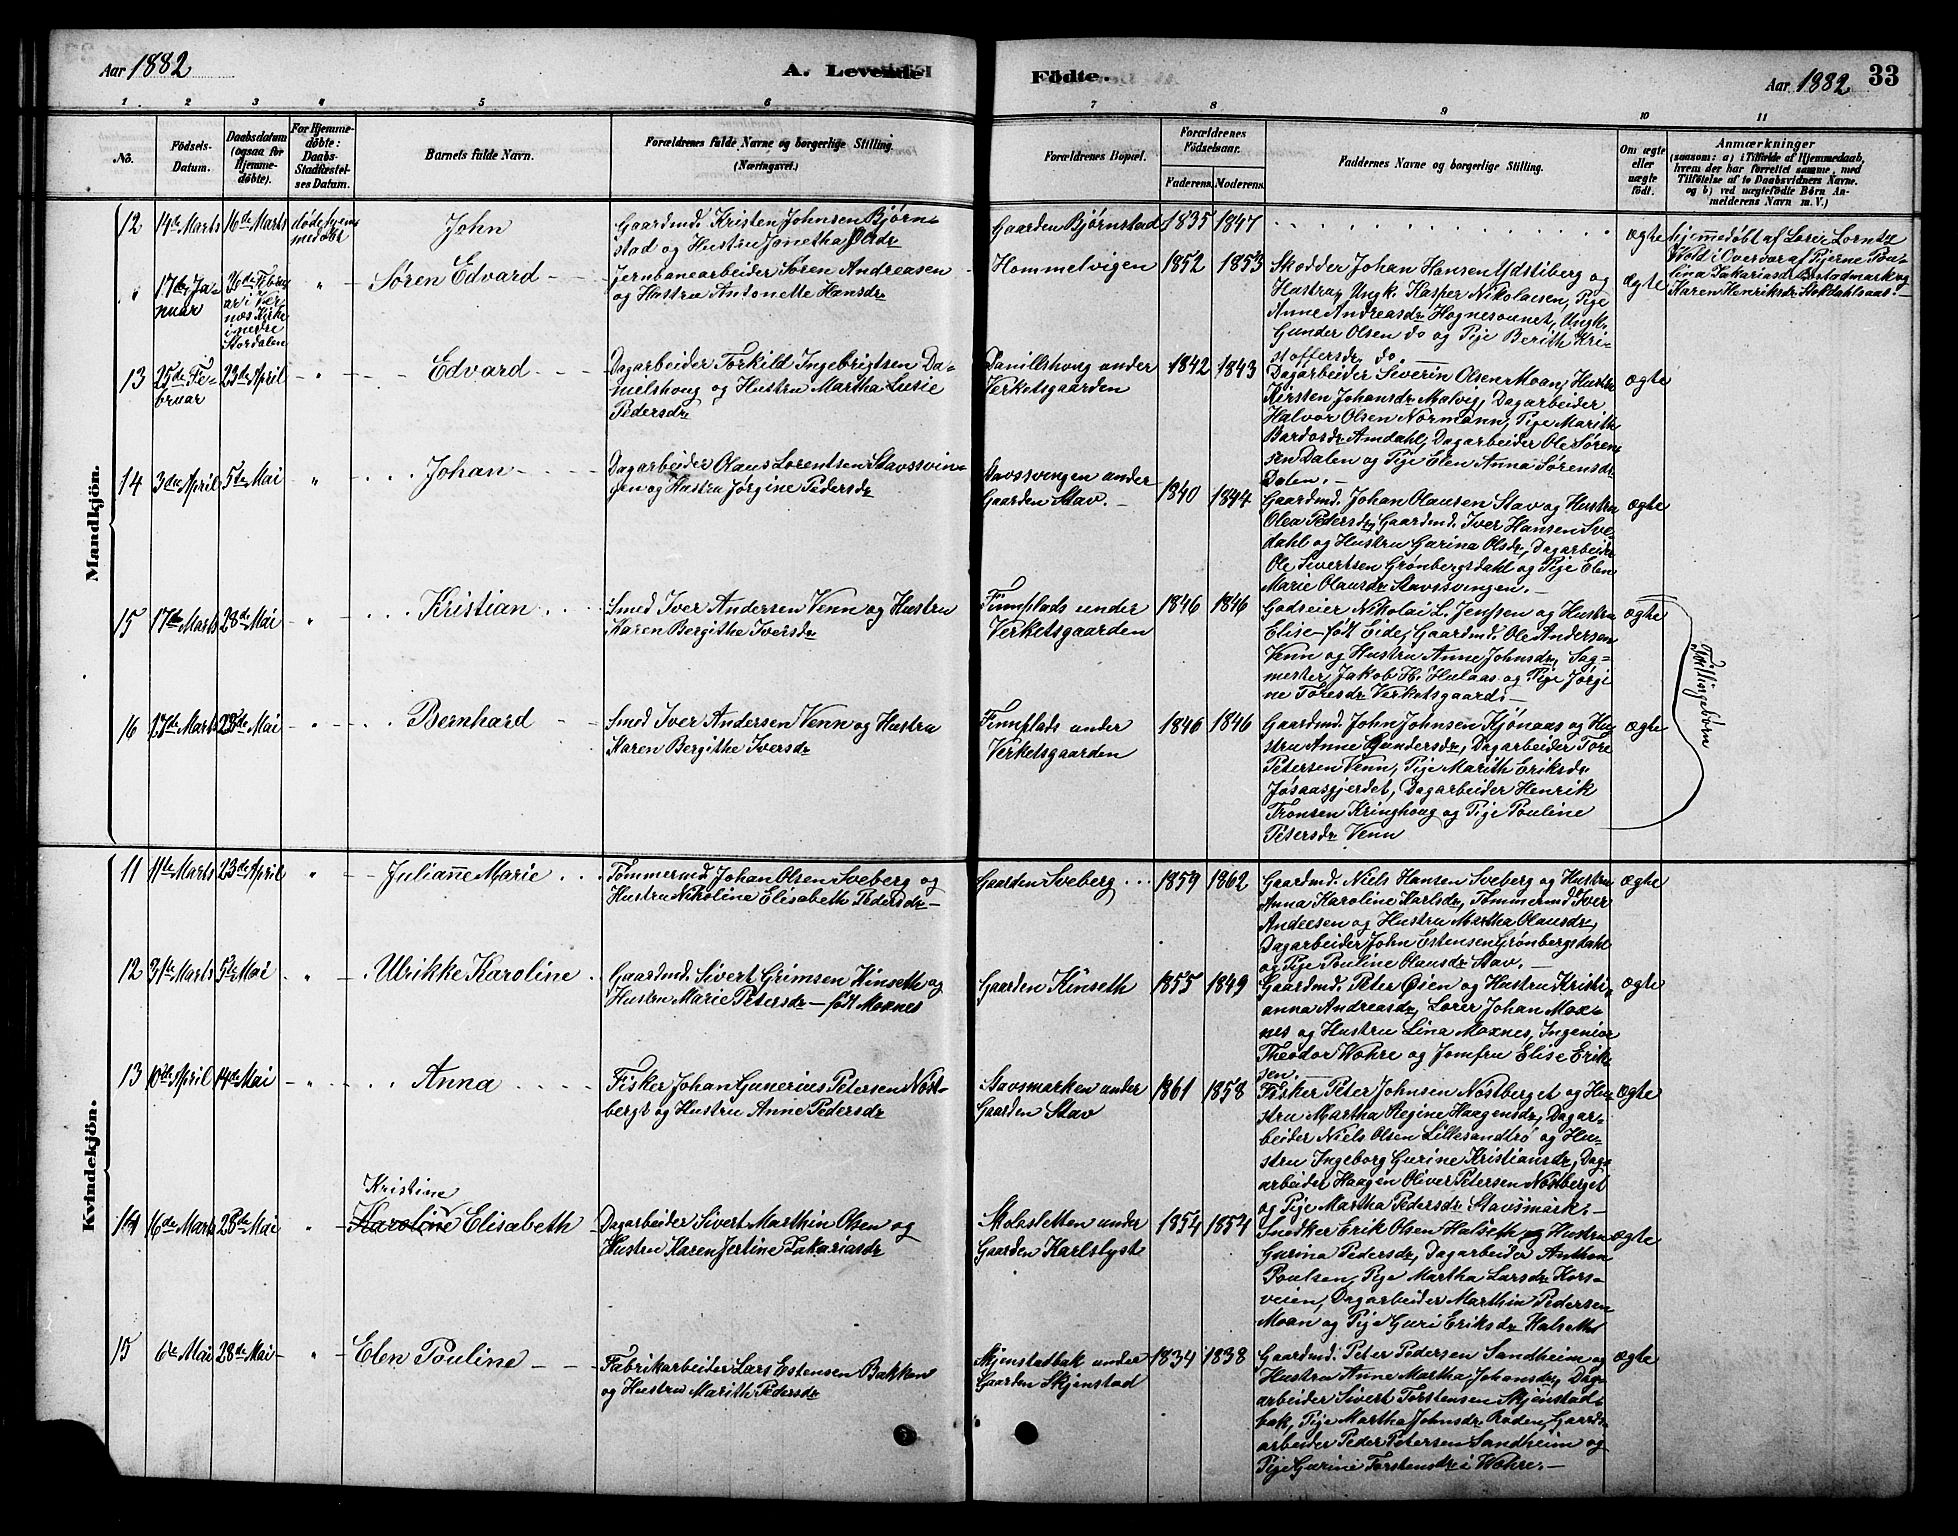 Aar 1882
A. Levende
Födte.
Aar 1882
33
1. 2 3 4 5 6 7 8 9 10 11
No.
Födsels-
Datum.
Daabsdatum
(ogsaa for
Hjemme-
døbte).
For Hjemme-
døbte:
Daabs-
Stadfæstel-
ses Datum.
Barnets fulde Navn.
Forældrenes fulde Navne og borgerlige Stilling.
(Næringsvei.)
Forældrenes Bopæl.
Forældrenes
Födselsaar.
Faderens. Moderens.
Faddernes Navne og borgerlige Stilling.
Om ægte
eller
uægte
født.
Anmærkninger
(saasom: a) i Tilfælde af Hjemmedaab,
hvem der har forrettet samme, med
Tilføielse af to Daabsvidners Navne.
og b) ved uægtefödte Börn An-
melderens Navn m. V.)
Mandkjön.
12
14de Marts
16de Marts
døde hjem
medøbt
John
Gaardmd. Kristen Johnsen Bjørn-
stad og Hustru Jonetha Olsdr
Gaarden Bjørnstad
1835
1847
ægte
Hjemmedøbt af Lærer Lorntz
Wold i Overvær af Pigerne Pou-
lina Zakariasdr. Bostadmark og
Karen Henriksdr. Stokdahlsaas.-
"
17de Ja-
nuar
26de Febru
ar i Vær-
næs Kirke
i nedre
Stordalen
"
Søren Edvard
Jernbanearbeider Søren Andreasen
og Hustru Antonette Hansdr
Hommelvigen
1852
1853
Skodder Johan Hansen Ydstiberg og
Hustru, Ungk. Kasper Nikolaisen, Pige
Anne Andreasdr. Hognesaunet, Ungk.
Gunder Olsen do og Pige Berith Kri-
stoffersdr. do.
ægte
13
25de Fe-
bruar
23de April
"
Edvard
Dagarbeider Torkild Ingebrigtsen Da-
nielshoug og Hustru Martha Lusie
Pedersdr
Danillshoug under
Verketsgaarden
1842
1843
Dagarbeider Severin Olsen Moan, Hustru
Kirsten Johansdr. Malvig, Dagarbeider
Halvor Olsen Normann, Pige Marith
Bardosdr. Amdahl, Dagarbeider Ole Søren-
sen Dalen og Pige Elen Anna Sørensdr.
Dalen.-
ægte
14
3de April
5te Mai
"
Johan
Dagarbeider Olaus Lorentsen Stavssvin-
gen og Hustru Jørgine Pedersdr
Stavssvingen under
Gaarden Stav.-
1840
1844
Gaardmd. Johan Olausen Stav og Hustru
Olea Pedersdr, Gaardmd. Iver Hansen Sve-
dahl og Hustru Gurina Olsdr, Dagarbeider
Ole Sivertsen Grønbergsdahl og Pige Elen
Marie Olausdr Stavssvingen.-
ægte
15
17de Marts
28de Mai
"
Kristian
Smed Iver Andersen Venn og Hustru
Karen Bergithe Iversdr
Finnplads under
Verketsgaarden
1846
1846
Godseier Nikolai L. Jenssen og Hustru
Elise født Eide, Gaardmd. Ole Andersen
Venn og Hustru Anne Johnsdr, Sag-
mester Jakob H. Hulaas og Pige Jørgi
ne Toresdr Verketsgaard.-
ægte
Tvillingebørn
16
17de Marts
28de Mai
"
Bernhard
Smed Iver Andersen Venn og Hustru
Karen Bergithe Iversdr
Finnplads under
Verketsgaarden
1846
1846
Gaardmd. John Johnsen Kjønaas og Hu-
stru Anne Gundersdr, Dagarbeider Tore
Petersen Venn, Pige Marith Eriksdr
Jøsaasgjerdet, Dagarbeider Henrik
Tronsen Kringhoug og Pige Pouline
Petersdr Venn
ægte
Kvindekjön.
11
11te Marts
23de April
"
Julianne Marie
Tømmermd. Johan Olsen Sveberg og
Hustru Nikoline Elisabeth Pedersdr-
Gaarden Sveberg
1859
1862
Gaardmd. Niels Hansen Sveberg og Hustru
Anna Karoline Karlsdr, Tømmermd Iver
Andersen og Hustru Martha Olausdr,
Dagarbeider John Estensen Grønbergsdahl
og Pige Pouline Olausdr Stav.-
ægte
12
31te Marts
5te Mai
"
Ulrikke Karoline
Gaardmd. Sivert Grimsen Kinseth og
Hustru Marie Petersdr - født Moxnes
Gaarden Kinseth
1855
1849
Gaardmd. Peter Øien og Hustru Kristi-
anna Andreasdr, Lærer Johan Mox-
nes og Hustru Lina Moxnes, Ingeniør
Theodor Wohre og Jomfru Elise Erik-
sen.-
ægte
13
10de April
14de Mai
"
Anna
Fisker Johan Gunerius Petersen Nøst-
berget og Hustru Anne Pedersdr
Stavsmarken under
Gaarden Stav
1861
1858
Fisker Peter Johnsen Nøstberget og Hu-
stru Martha Regine Haagensdr, Dagar-
beider Niels Olsen Lillesandtrø og Hu-
stru Ingeborg Gurine Kristiansdr, Dag-
arbeider Haagen Oliver Petersen Nøstberget
og Pige Martha Pedersdr Stavsmark.-
ægte
14
16de Marts
28de Mai
"
Kristine
Karoline Elisabeth
Dagarbeider Sivert Marthin Olsen og
Hustru Karen Jertine Zakariasdr
Skolasletten under
Gaarden Karlslyst
1854
1854
Snedker Erik Olsen Halseth og Hustru
Gurina Pedersdr, Dagarbeider Anthon
Poulsen, Pige Martha Larsdr Kors-
veien, Dagarbeider Marthin Pedersen
Moan og Pige Guri Eriksdr Halseth
ægte
15
6te Mai
28de Mai
"
Elen Pouline
Fabrikarbeider Lars Estensen Bakken
og Hustru Marith Pedersdr
Skjenstadbak under
Gaarden Skjenstad
1834
1838
Gaardmd. Peter Pedersen Sandheim og
Hustru Anne Martha Johansdr, Dag-
arbeider Sivert Torstensen Skjenstad-
bak, Pige Martha Johnsdr Roden, Gaards-
arbeider Peder Petersen Sandheim og
Pige Gurine Torstensdr i Wohre.-
ægte